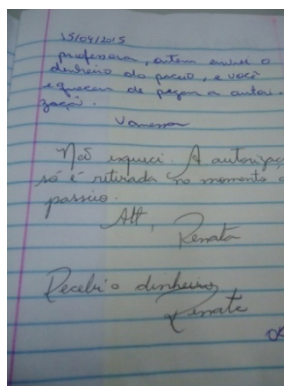 15/04/2015
professora, ontem enviei o
dinheiro do paceio, e você
esqueceu de pegar a autori
zaçaõ.
Vanessa
Não esqueci. A autorizaç
só é retirada no momento d
passeio.
Att,
Renata
Recebi o dinheiro
Renata